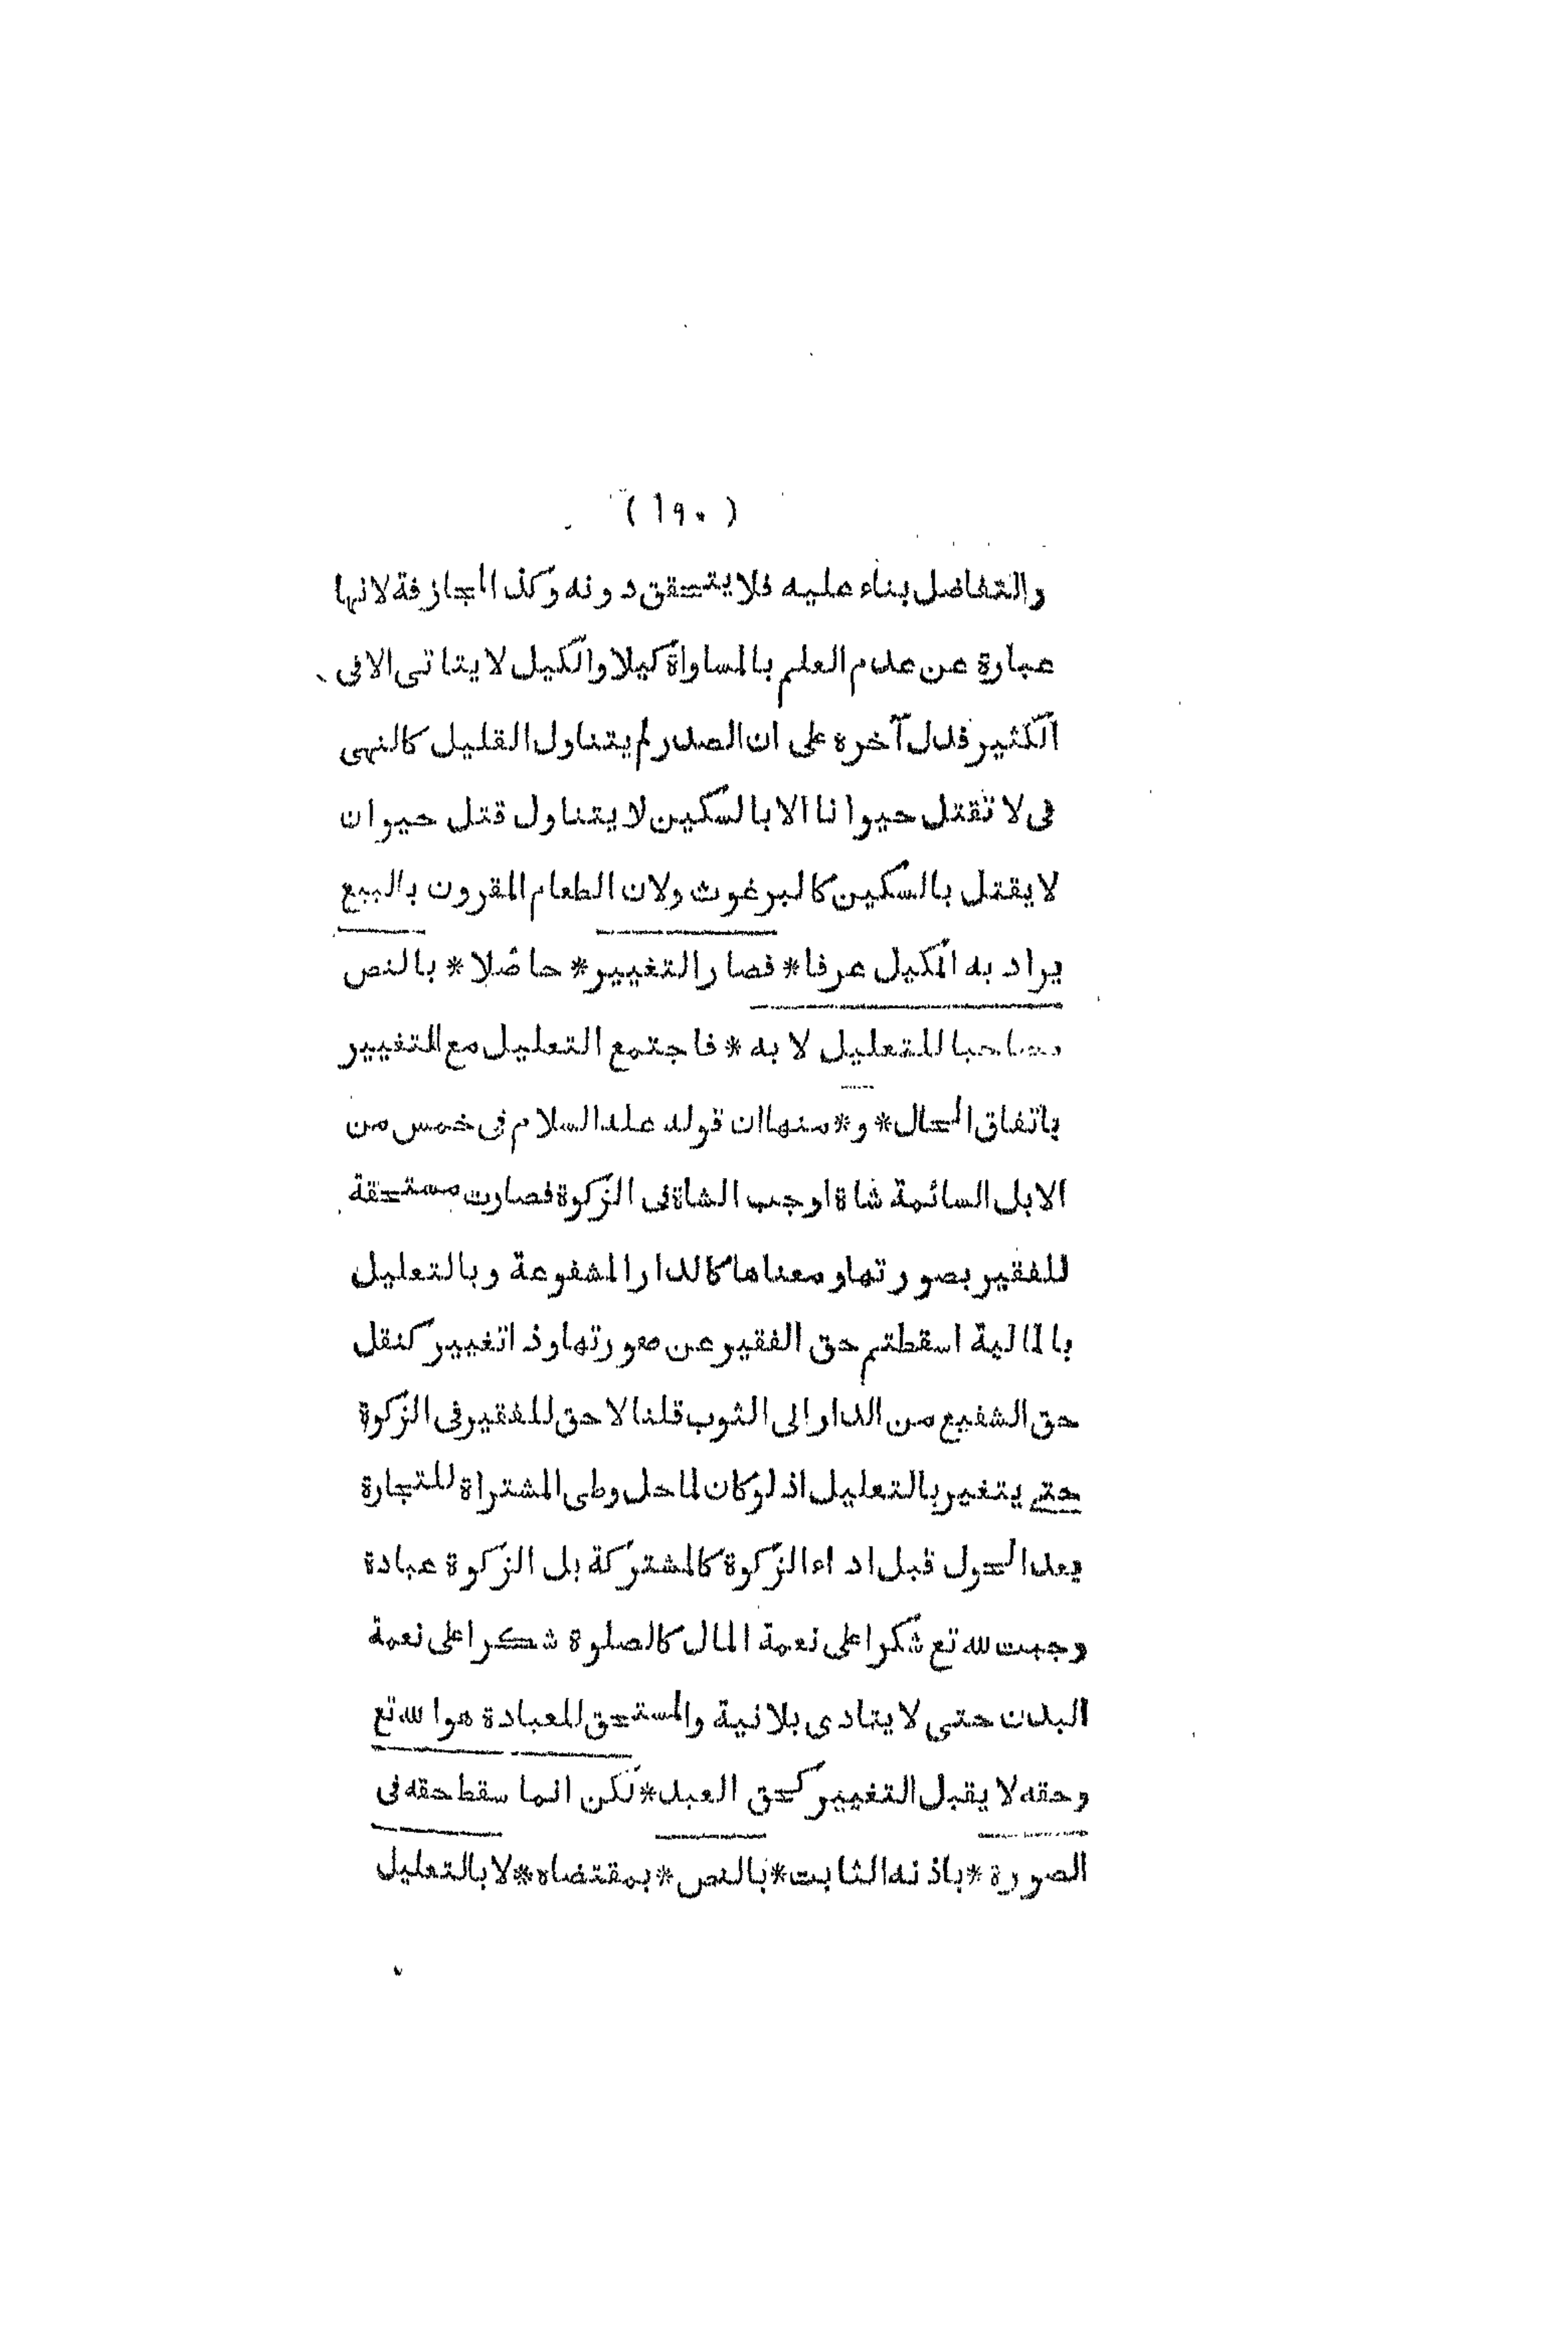 ( ١٩٠ )
والتفاضل بناء عليه فلا يتحقق دونه وكذا المجازفة لانها
عبارة عن عدم العلم بالمساواة كيلا والكيل لا يتاتى الا فى
الكثير فدل آخره على ان الصدر لم يتناول القليل كالنهى
فى لا تقتل حيوانا الا بالسكين لا يتناول قتل حيوان
لا يقتل بالسكين كالبرغوث ولان الطعام المقرون بالبيع
يراد به المكيل عرفا * فصار التغيير * حاصلا * بالنص
مصاحبا للتعليل لا به * فاجتمع التعليل مع التغيير
باتفاق الحال * و * منها ان قوله عليه السلام فى خمس من
الابل السائمة شاة اوجب الشاة فى الزكوة فصارت مستحقة
للفقير بصورتها ومعناها كالدار المشفوعة وبالتعليل
بالمالية اسقطتم حق الفقير عن صورتها وذا تغيير كنقل
حق الشفيع من الدار الى الثوب قلنا لا حق للفقير فى الزكوة
حتى يتغير بالتعليل اذ لو كان لما حل وطى المشتراة للتجارة
بعد الحول قبل اداء الزكوة كالمشتركة بل الزكوة عبادة
وجبت لله تع شكرا على نعمة المال كالصلوة شكرا على نعمة
البدن حتى لا يتادى بلا نية والمستحق للعبادة هو الله تع
وحقه لا يقبل التغيير كحق العبد * لكن انما سقط حقه فى
الصورة * باذنه الثابت * بالنص * بمقتضاه * لا بالتعليل